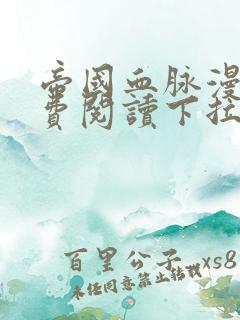 帝國血脉漫
費閱讀下拉
百里公子 xs8
未经同意禁止转载